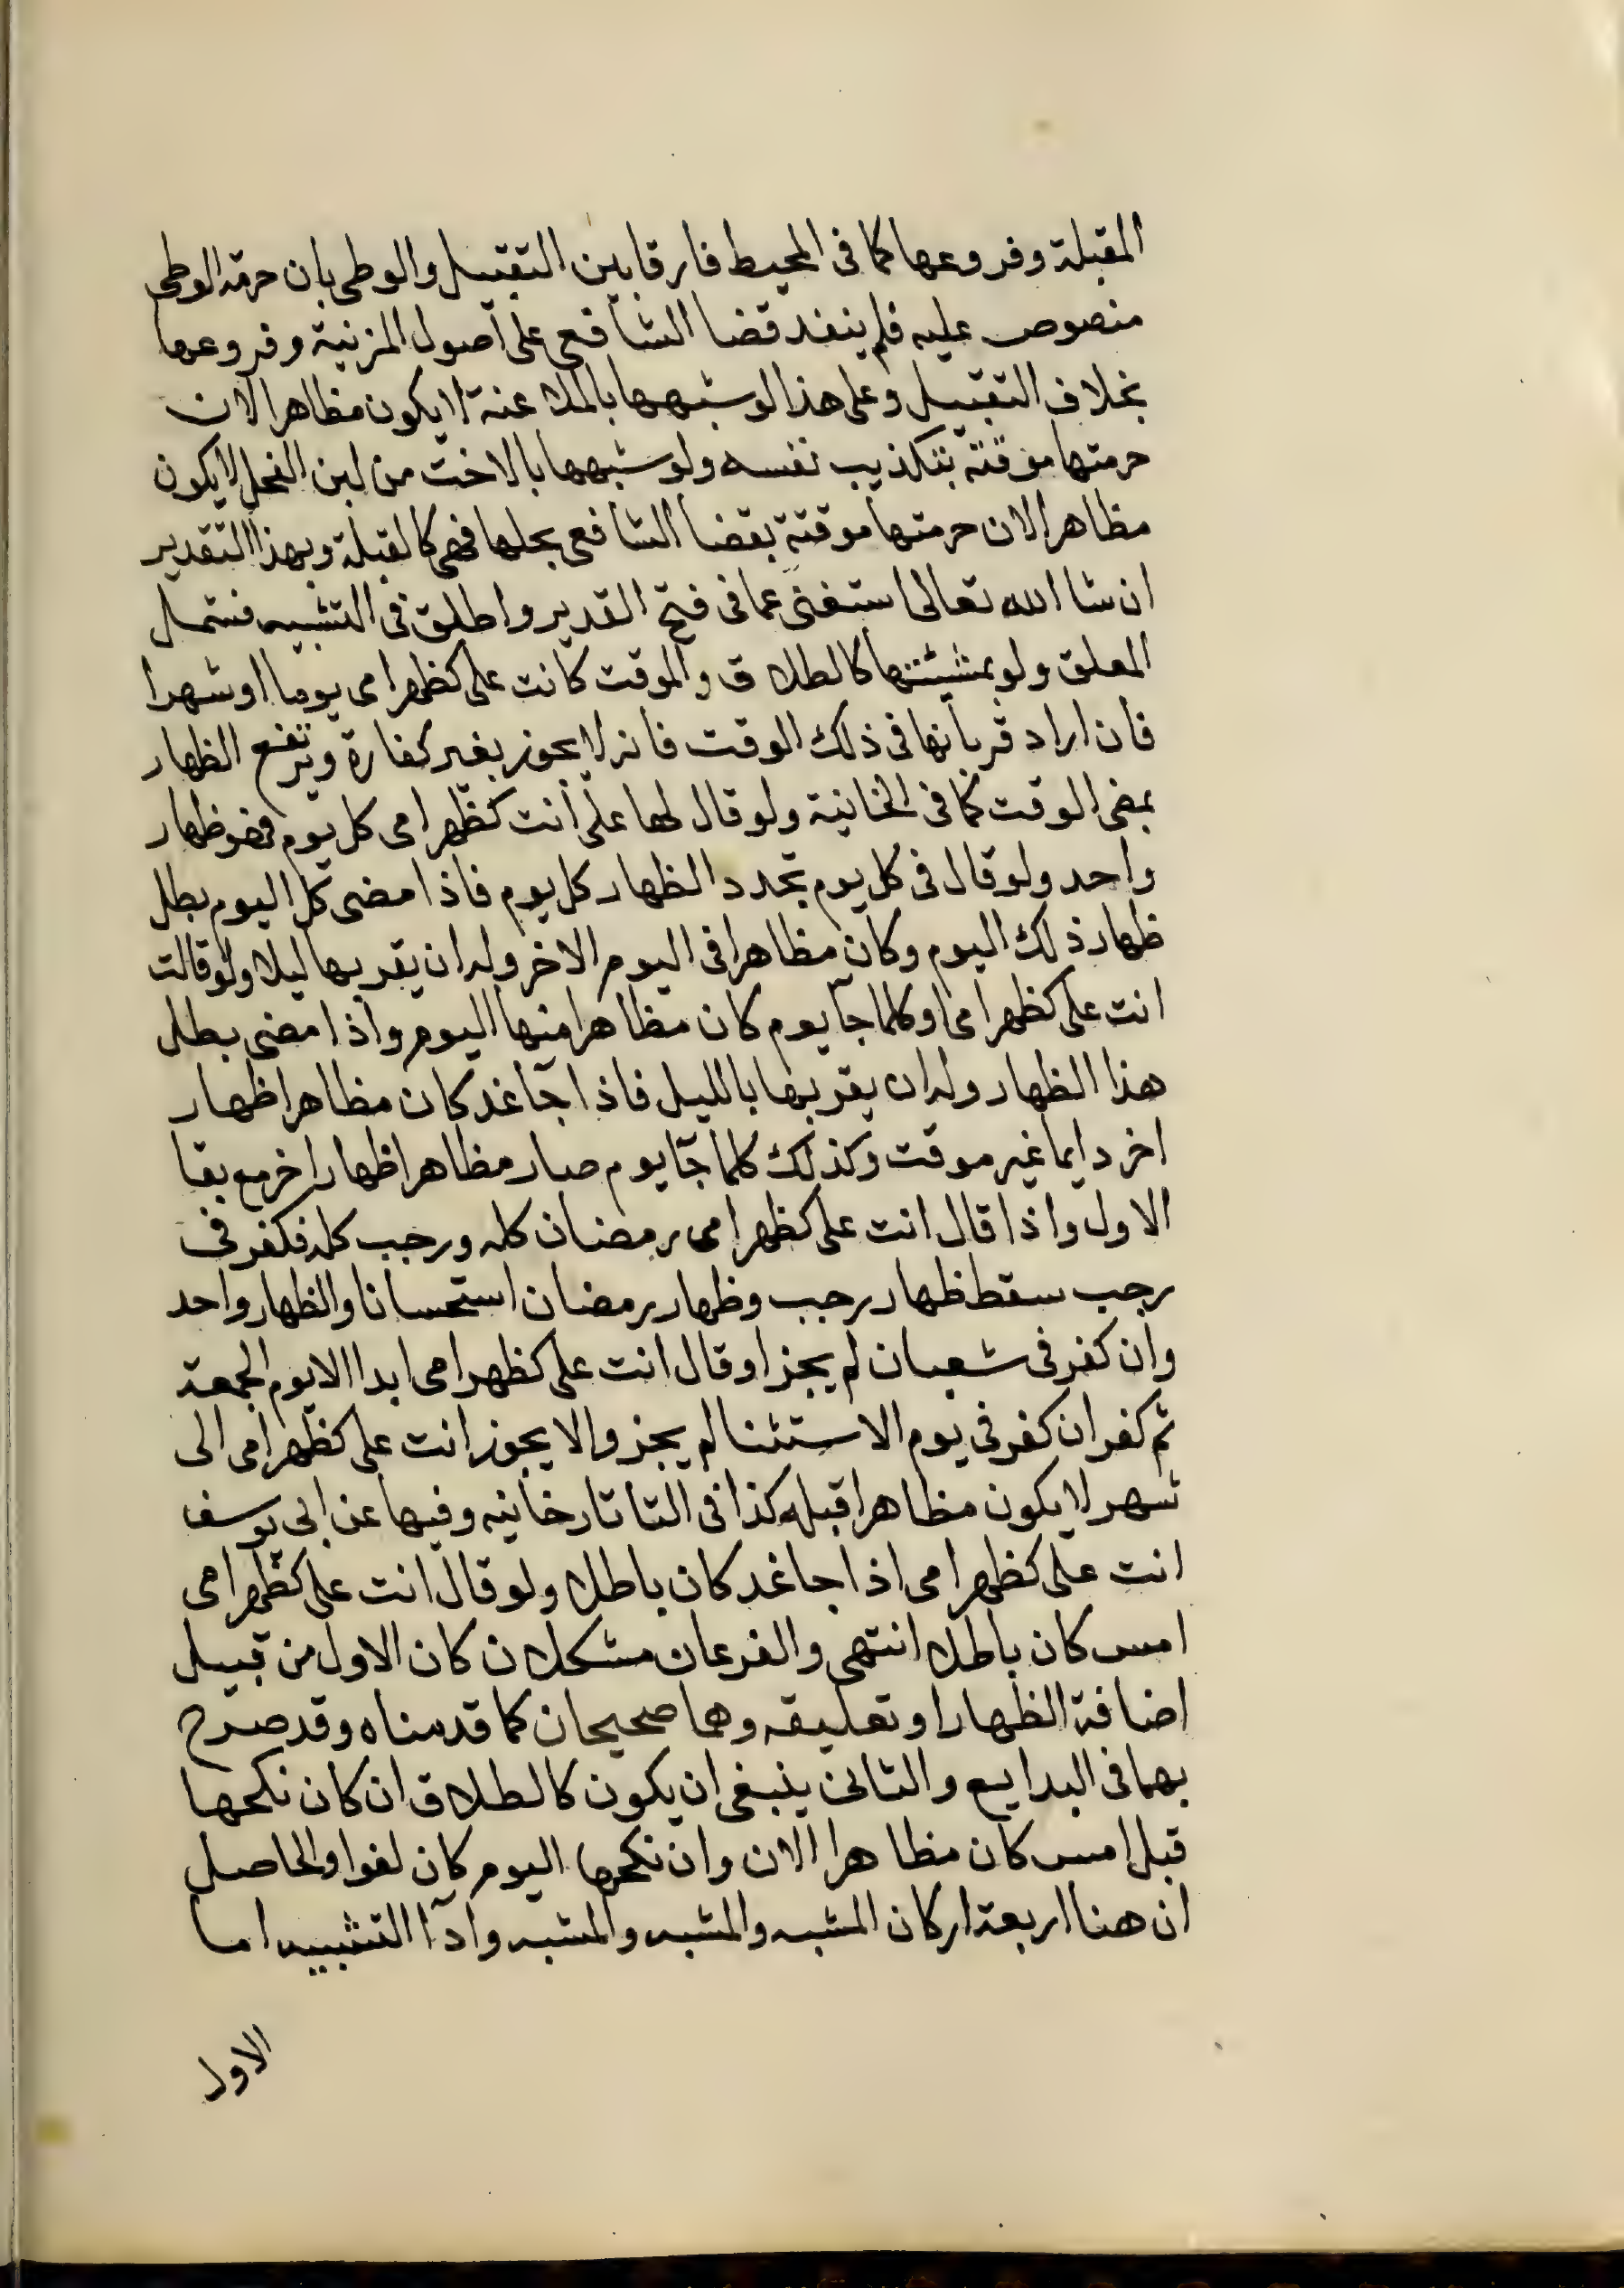 المقبلة وفروعها كما فى المحيط فارقا بين التقبيل والوطى بان حرمة الوطى
منصوص عليه فلم ينفد قضا الشافعى على اصول المزنية وفروعها
بخلاف التقبيل وعلى هذا لو شبهها بالملاعنة لا يكون مظاهرا لان
حرمتها موقتة بتكذيب نفسه ولو شبهها بالاخت من لبن الفحل لا يكون
مظاهرا لان حرمتها موقتة بقضا الشافعى بحلها فهى كالقبلة وبهذا التقدير
ان شا الله تعالى استغنى عما فى فتح القدير واطلق فى التشبيه فشمل
المعلق ولو بمشيئتها كالطلاق والموقت كانت على كظهر امى يوما او شهرا
فان اراد قربانها فى ذلك الوقت فانه لا يجوز بغير كفارة وترتفع الظهار
بمضى الوقت كما فى الخانية ولو قال لها على انت كظهر امى كل يوم فهو ظهار
واحد ولو قال فى كل يوم تجدد الظهار كل يوم فاذا مضى كل اليوم بطل
ظهار ذلك اليوم وكان مظاهرا فى اليوم الاخر وله ان يقربها ليلا ولو قالت
انت على كظهر امى او كلما جآ يوم كان مظاهرا منها اليوم واذا مضى بطل
هذا الظهار وله ان يقربها بالليل فاذا جآ غد كان مظاهرا ظهار
اخر دايما غير موقت وكذلك كلما جآ يوم صار مظاهرا ظهارا اخر مع بقا
الاول واذا قال انت على كظهر امى رمضان كله ورجب كله فكفر فى
رجب سقط ظهار رجب وظهار رمضان استحسانا والظهار واحد
وان كفر فى شعبان لم يجز او قال انت على كظهر امى ابدا الا يوم الجمعة
ثم كفر ان كفر فى يوم الاستثنا لم يجز والا يجوز انت على كظهر امى الى
شهر لا يكون مظاهرا قبله كذا فى التاتارخانيه وفيها عن ابى يوسف
انت على كظهر امى اذا جا غد كان باطلا ولو قال انت على كظهر امى
امس كان باطلا انتهى والفرعان مشكلان كان الاول من قبيل
اضافة الظهار او تعليقه وهما صحيحان كما قدمناه وقد صرح
بهما فى البدايع والثانى ينبغى ان يكون كالطلاق ان كان نكحها
قبل امس كان مظاهرا الان وان نكحها اليوم كان لغوا والحاصل
ان هنا اربعة اركان المشبه والمشبه والمشبه واداآ التشبيه اما
الاول